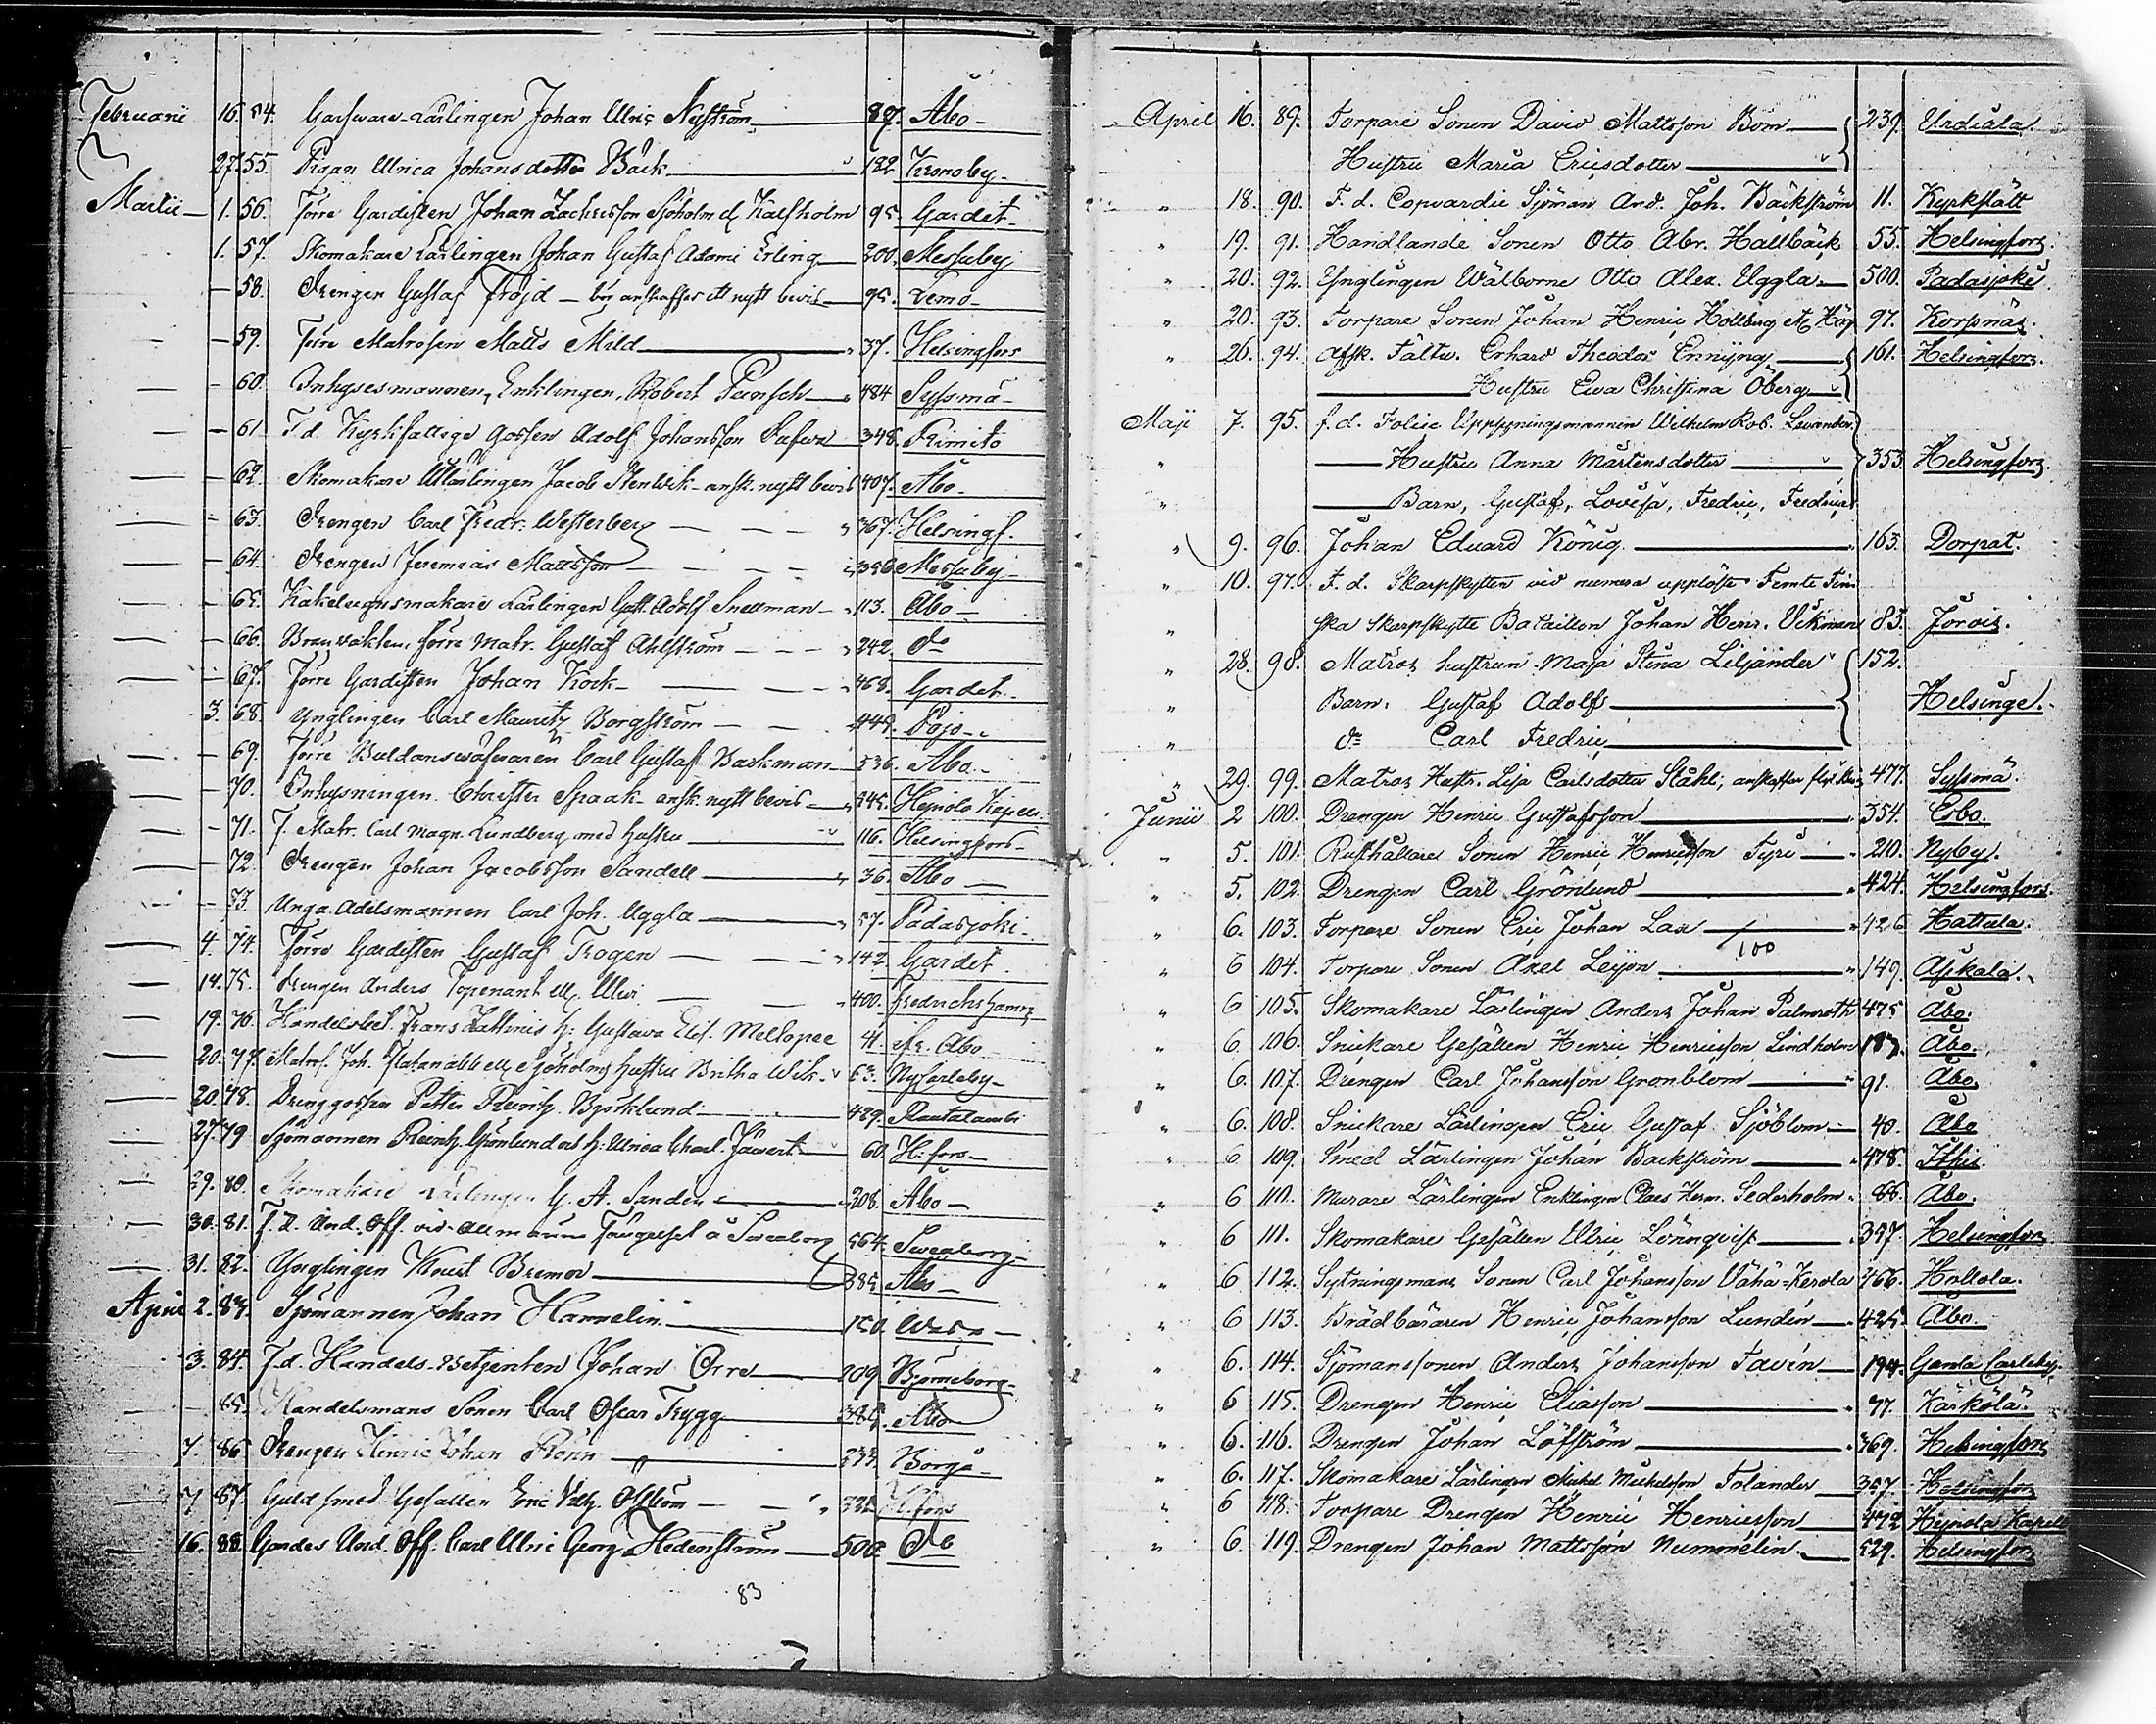 Februarii 16. 54. Garfware Lärlingen Johan Ulric Nyström 87. Åbo
27. 55. Pigan Ulrica Johansdotter Back 182 Kronoby
Martii 1. 56. Förre Gardisten Johan Zachrisson Sjöholm el. Kalfholm 95. Gardet
1. 57. Skomakare Lärlingen Johan Gustaf Adami Erling 200. Messuby
58. Drengen Gustaf Fröjd bör anskaffas ett nytt bevis 95. Lemo
59. Förre Matrosen Matts Mild 37. Helsingfors
60. Inhysesmannen, Enklingen, Robert Punsch 484 Syssmä
61 F. d. Kyrkfattige gossen Adolf Johansson 348. Kimito
62. Skomakare Lärlingen Jacob Stenvik ansk. nytt bevis 407. Åbo
63. Drengen Carl Fredr. Westerberg 367. Helsingf.
64. Drengen Jeremias Mattsson 356 Messuby
65. Kakelugnsmakare Lärlingen Gust. Adolf Snellman 113. Åbo
66. Brandvakten, förre Matr. Gustaf Ahlström 242. do
67. Förre Gardisten Johan Kock 468. Gardet
3. 68. Ynglingen Carl Mauritz Borgström 445. Pojo
69. Förre Carl Gustaf Backman 536. Åbo
70. Inhysningen Christer Spaak ansk. nytt bevis 245. Heinola Kapell
71. F. Matr. Carl Magn. Lundberg med hustru 116. Helsingfors
72. Drengen Johan Jacobsson Sandell 36. Åbo
73. Unga Adelsmannen Carl Joh. Uggla 57. Padasjoki
4. 74. Förre Gardisten Gustaf Trogen 142 Gardet
14. 75. Drengen Anders Topenant 400. Fredrichshamn
19. 76. Frans H: Gustava Elis. Mellopee 41. Åbo
20. 77. Matros. Joh. Sjöholms hustru Britha Wik 63. Nycarleby
20. 78. Drenggossen Petter Reinh. Björklund 429. Rautalambi
27. 79 Sjömannen Reinh. Grönlunds h: Ulrica Charl. 60. H:fors
29. 80. Skomakare Lärlingen G. A. Sander 208. Åbo
30. 81. F. d. Und. Off. vid Allmänna Fängelset å Sweaborg 564. Sweaborg
31. 82. Ynglingen Knut Bremer 385 Åbo
April 2. 83. Sjömannen Johan Hannelin 150. Wasa
3. 84. F. d. Handels-Betjenten Johan Orre 209 Björneborg
85. Handelsmans Sonen Carl Oscar Trygg 385. Åbo
7. 86 Drengen Henric Johan Rönn 233. Borgå
7 87. Guldsmed Gesällen Eric Vilh. Öström 221. H:fors
16. 88. Gardes Und. Off. Carl Ulric Georg Hedenström 500. do
83
April 16. 89. Torpare Sonen David Mattsson Bom 239. Urdiala.
Hustru Maria Ericsdotter
" 18. 90. F. d. Copvardie Sjöman And. Joh. Bäckström 11. Kyrkslätt
" 19. 91. Handlande Sonen Otto Abr. Hallbäck 55. Helsingfors.
" 20. 92. Ynglingen Wälborne Otto Alex. Uggla 500. Padasjoki
" 20. 93. Torpare Sonen Johan Henric Hollberg 97. Korsnäs.
" 26. 94. Afsk. Fältw. Erhard Theodor Ennyng 161. Helsingfors.
Hustru Ewa Christina Öberg
Maji 7. 95. f. d. Polise Uppsyningsmannen Wilhelm Rob. Lavander
" Hustru Anna Mårtensdotter 353. Helsingfors.
" Barn, Gustaf, Lovisa, Fredric, Fredrica
" 9. 96. Johan Eduard König 163. Dorpat.
" 10. 97. F. d. Skarpskytten vid numera upplöste Femte Fin
" ska Skarpskytte Bataillon Johan Henr. Vikman 83. Jorois.
" 28. 98. Matros hustrun Maja Stina Liljander 152.
" Barn: Gustaf Adolf Helsinge.
" do Carl Fredric
" 29. 99. Matros Hustr. Lisa Carlsdotter Ståhl; 477. Syssmä.
Junii 2 100. Drengen Henric Gustafsson 354. Esbo.
" 5. 101. Rusthållare Sonen Henric Henricsson Fyri 210. Nyby.
" 5. 102. Drengen Carl Grönlund 424. Helsingfors.
" 6. 103. Torpare Sonen Eric Johan Lax 426 Hattula.
100
" 6 104. Torpare Sonen Axel Leijon 149. Askala.
" 6 105. Skomakare Lärlingen Anders Johan Palmroth 475 Åbo.
" 6. 106. Snickare Gesällen Henric Henricsson Lindholm 183. Åbo.
" 6. 107. Drengen Carl Johansson Grönblom 91. Åbo
" 6. 108. Snickare Lärlingen Eric Gustaf Sjöblom 40. Åbo
" 6 109. Smed Lärlingen Johan Backström 478. Ithis.
" 6 110. Murare Lärlingen Enklingen Claes Herm. Sederholm 88. Åbo.
" 6 111. Skomakare Gesällen Ulric Lönnqvist 357. Helsingfors
" 6 112. Sytningsmans Sonen Carl Johansson Vähä-Kerola 466. Hollola.
" 6 113. Brädbäraren Henric Johansson Lundén 425. Åbo.
" 6. 114. Sjömanssonen Anders Johansson Tavén 194. Gamla Carleby.
" 6 115. Drengen Henric Eliasson 77. Kärkölä.
" 6. 116. Drengen Johan Löfström 369. Helsingfors
" 6. 117. Skomakare Lärlingen Michel Michelsson Tolander 367. Helsingfors
" 6 118. Torpare Drengen Henric Henricsson 472 Heinola Kapell
" 6. 119. Drengen Johan Mattsson Nummelin 529. Helsingfors